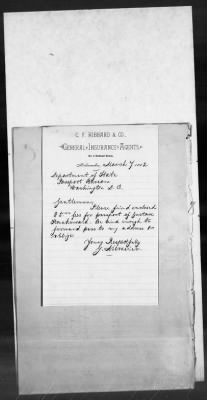 C. F. HIBBARD & CO.,
GENERAL INSURANCE AGENTS,
Milwaukee, March 7 1892
Department of State
Passport Bureau
Washington D. C.
Gentlemen,
Please find enclosed
fee for passport of Gustav
Be kind enough to
forward pass to my address &
oblige
Yours Respectfully